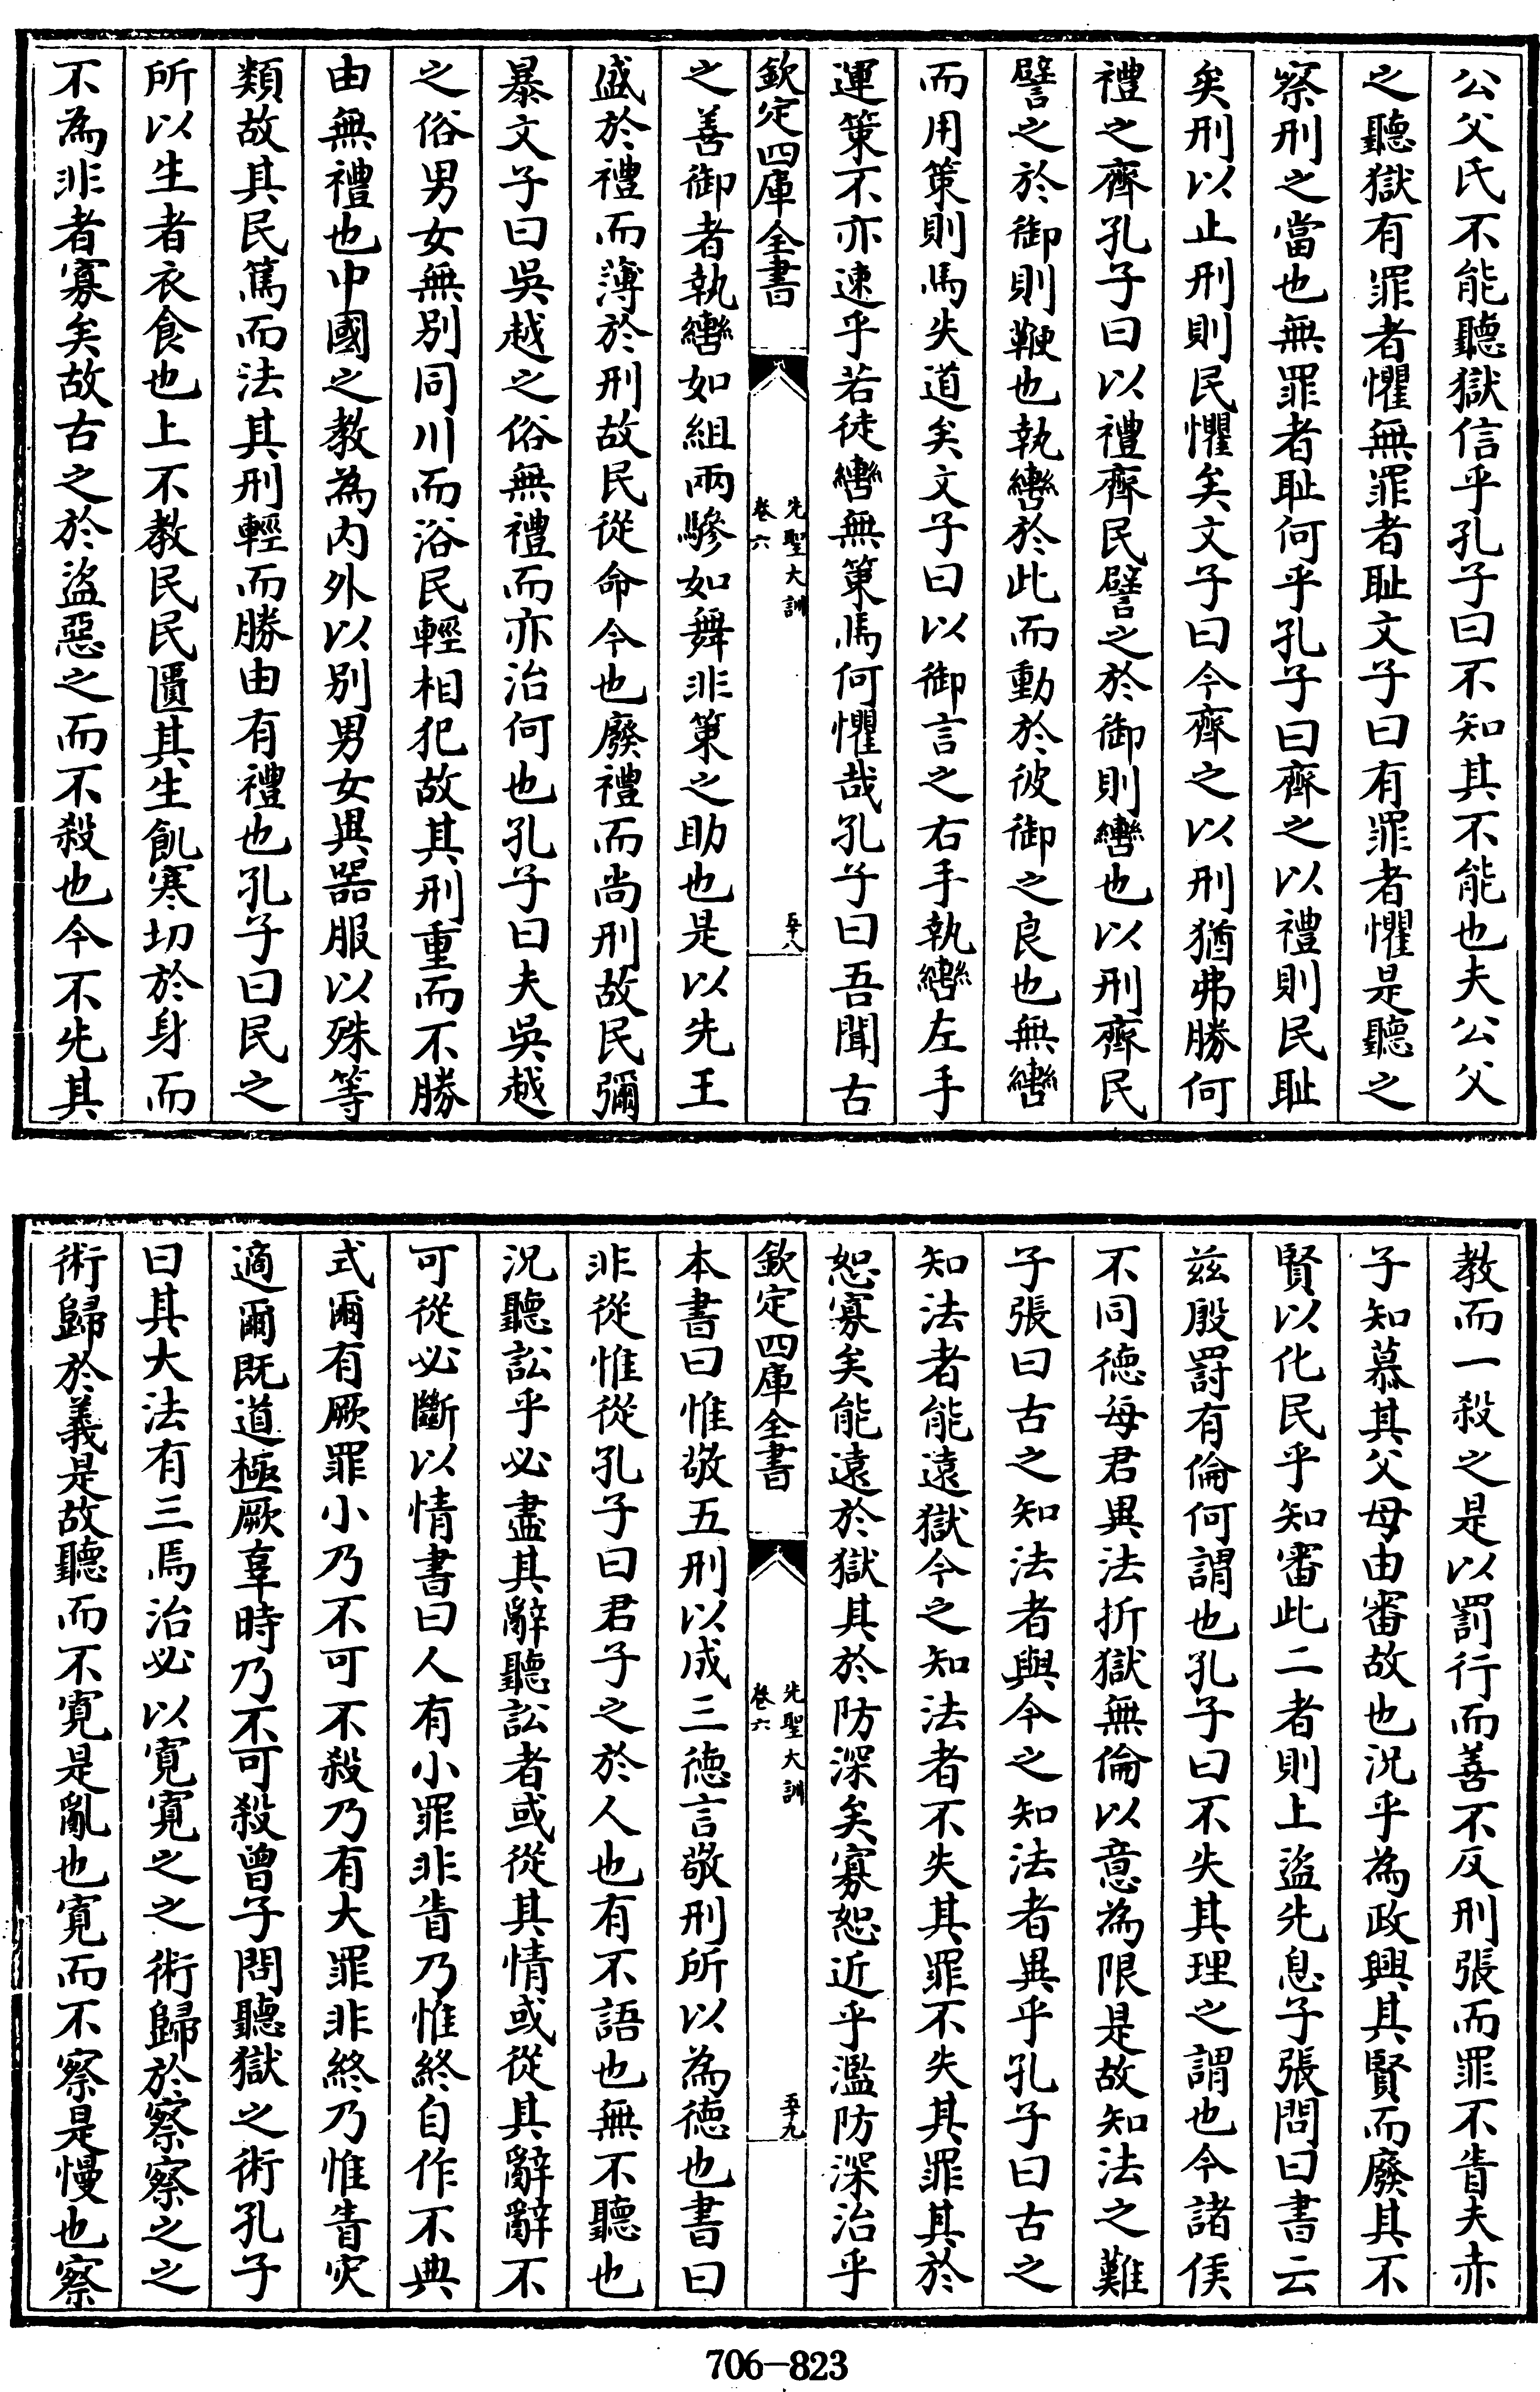 公父氏不能聽獄信乎孔子曰不知其不能也夫公父
之聽獄有罪者懼無罪者恥文子曰有罪者懼是聽之
察刑之當也無罪者恥何乎孔子曰齊之以禮則民恥
矣刑以止刑則民懼矣文子曰今齊之以刑猶弗勝何
禮之齊孔子曰以禮齊民譬之於御則轡也以刑齊民
譬之於御則鞭也執轡於此而動於彼御之良也無轡
而用策則馬失道矣文子曰以御言之右手執轡左手
運策不亦速乎若徒轡無策馬何懼哉孔子曰吾聞古
欽定四庫全書
先聖大訓
卷六
五十八
之善御者執轡如組兩驂如舞非策之助也是以先王
盛於禮而薄於刑故民從命今也廢禮而尚刑故民彌
暴文子曰吳越之俗無禮而亦治何也孔子曰夫吳越
之俗男女無別同川而浴民輕相犯故其刑重而不勝
由無禮也中國之教為內外以別男女異器服以殊等
類故其民篤而法其刑輕而勝由有禮也孔子曰民之
所以生者衣食也上不教民民匱其生飢寒切於身而
不為非者寡矣故古之於盜惡之而不殺也今不先其
教而一殺之是以罰行而善不反刑張而罪不眚夫赤
子知慕其父母由審故也況乎為政興其賢而廢其不
賢以化民乎知審此二者則上盜先息子張問曰書云
茲殷罰有倫何謂也孔子曰不失其理之謂也今諸侯
不同德每君異法折獄無倫以意為限是故知法之難
子張曰古之知法者與今之知法者異乎孔子曰古之
知法者能遠獄今之知法者不失其罪不失其罪其於
恕寡矣能遠於獄其於防深矣寡恕近乎濫防深治乎
欽定四庫全書
先聖大訓
卷六
五十九
本書曰惟敬五刑以成三德言敬刑所以為德也書曰
非從惟從孔子曰君子之於人也有不語也無不聽也
況聽訟乎必盡其辭聽訟者或從其情或從其辭辭不
可從必斷以情書曰人有小罪非眚乃惟終自作不典
式爾有厥罪小乃不可不殺乃有大罪非終乃惟眚災
適爾既道極厥辜時乃不可殺曾子問聽獄之術孔子
曰其大法有三焉治必以寬寬之之術歸於察察之之
術歸於義是故聽而不寬是亂也寬而不察是慢也察
706-823